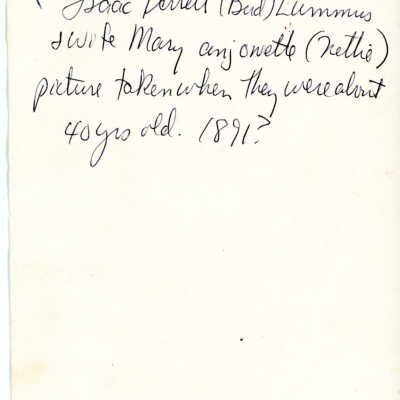 Isaac Ferrell (Bud) Lummus
& wife Mary anjonette (Nettie)
picture taken when they were about
40 yrs old. 1891?